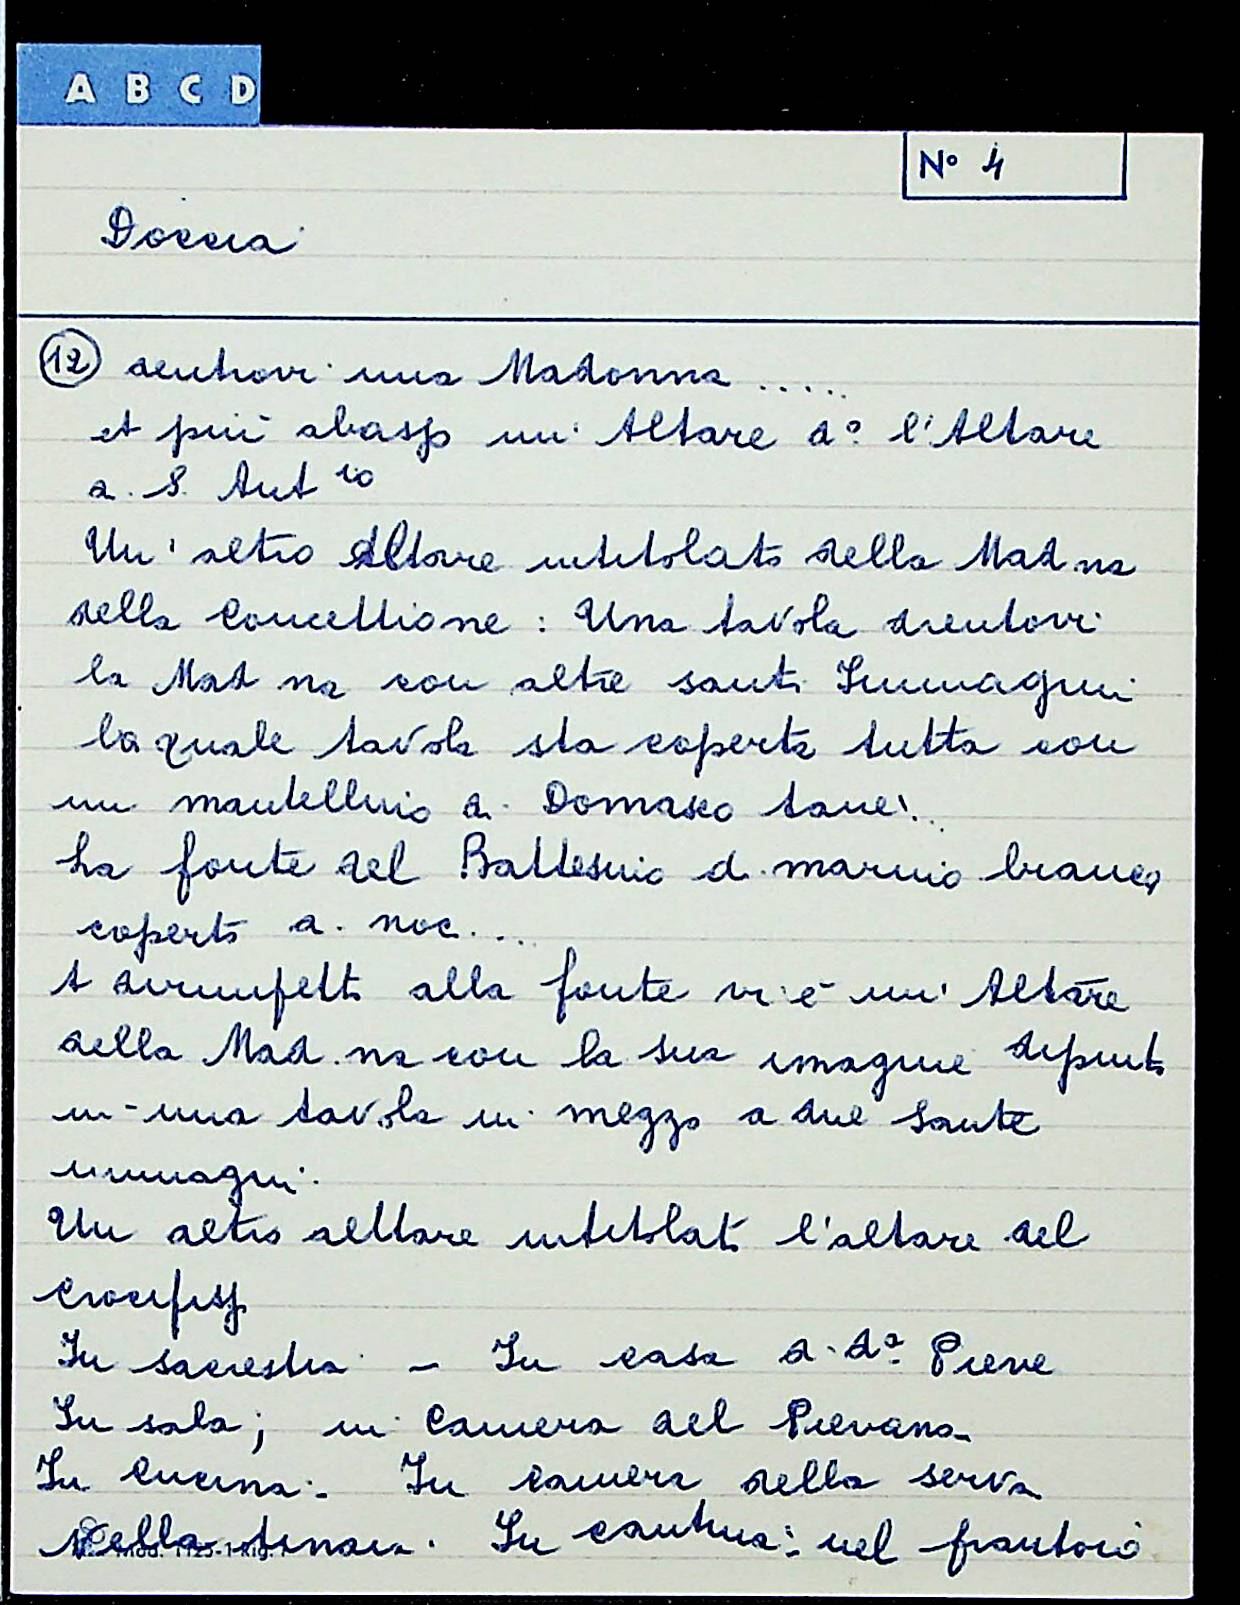 A B C D
Nº 4
Doccia
12 dentrovi una Madonna .....
et più abasso un' Altare dº l'Altare
d. S. Ant io
Un' altro Altare intitolato della Mad na
della Concettione : Una tavola drentovi
la Mad na con altre santi Immagini
la quale tavola sta coperta tutta con
un mantellino di Domasco tane'...
ha fonte del Battesimo di marmo bianco
coperto di noc....
A dirimpetto alla fonte vi è un' Altare
della Mad.na con la sua imagine dipinta
in una tavola in mezzo a due Sante
immagini.
Un altro alttare intitolato l'altare del
Crocifisso
In sacrestia - In casa di dª Pieve
In sala; in Camera del Pievano
In Cucina. In camera della serva
Nella tinaia. In cantina: nel frantoio